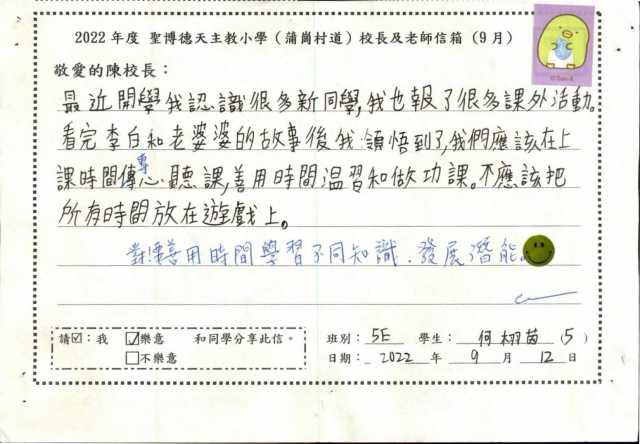 2022 年度 聖博德天主教小學（蒲崗村道）校長及老師信箱（9 月）
敬愛的陳校長：
最近開學我認識很多新同學，我也報了很多課外活動。
看完李白和老婆婆的故事後我領悟到了，我們應該在上
專
課時間傳心聽課，善用時間溫習和做功課。不應該把
所有時間放在遊戲上。
對！善用時間學習不同知識、發展潛能。
請☑：我 ☑樂意 和同學分享此信。
□不樂意
班別： 5E 學生： 何栩茵 (5)
日期： 2022 年 9 月 12 日